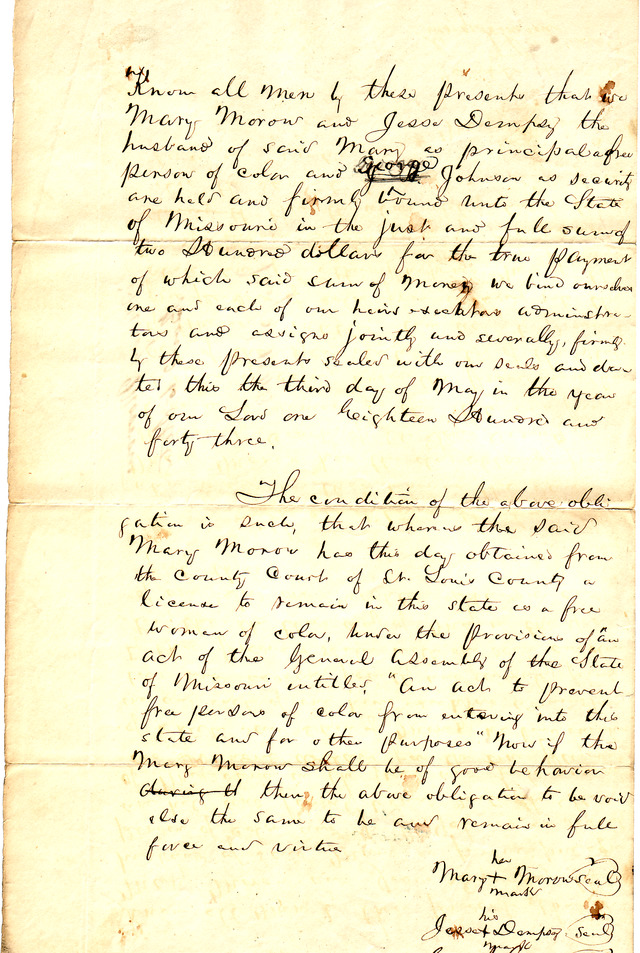 Know all Men by these presents that we
Mary Morow and Jesse Dempsy the
husband of said Mary as principal a free
person of color and George Johnson as security
are held and firmly bound unto the State
of Missouri in the just and full sum of
two Hundred dollars for the true payment
of which said sum of Money we bind ourselves
one and each of our heirs executors adminstra-
tors and assigns jointly and severally, firmly
by these presents sealed with our seals and da-
ted this the third day of May in the year
of our Lord one Eighteen Hundred and
forty three.
The condition of the above obli
gation is such, that whereas the said
Mary Morow has this day obtained from
the County Court of St. Louis County a
license to remain in this state as a free
woman of color, under the provisions of "an
act of the General Assembly of the State
of Missouri entitled, "An act to prevent
free persons of color from entering into this
state and for other purposes" Now if the
Mary Morow shall be of good behavior
then the above obligation to be void
else the same to be and remain in full
force and virtue
her
Mary + Morow seal
mark
his
Jesse + Dempsy seal
mark